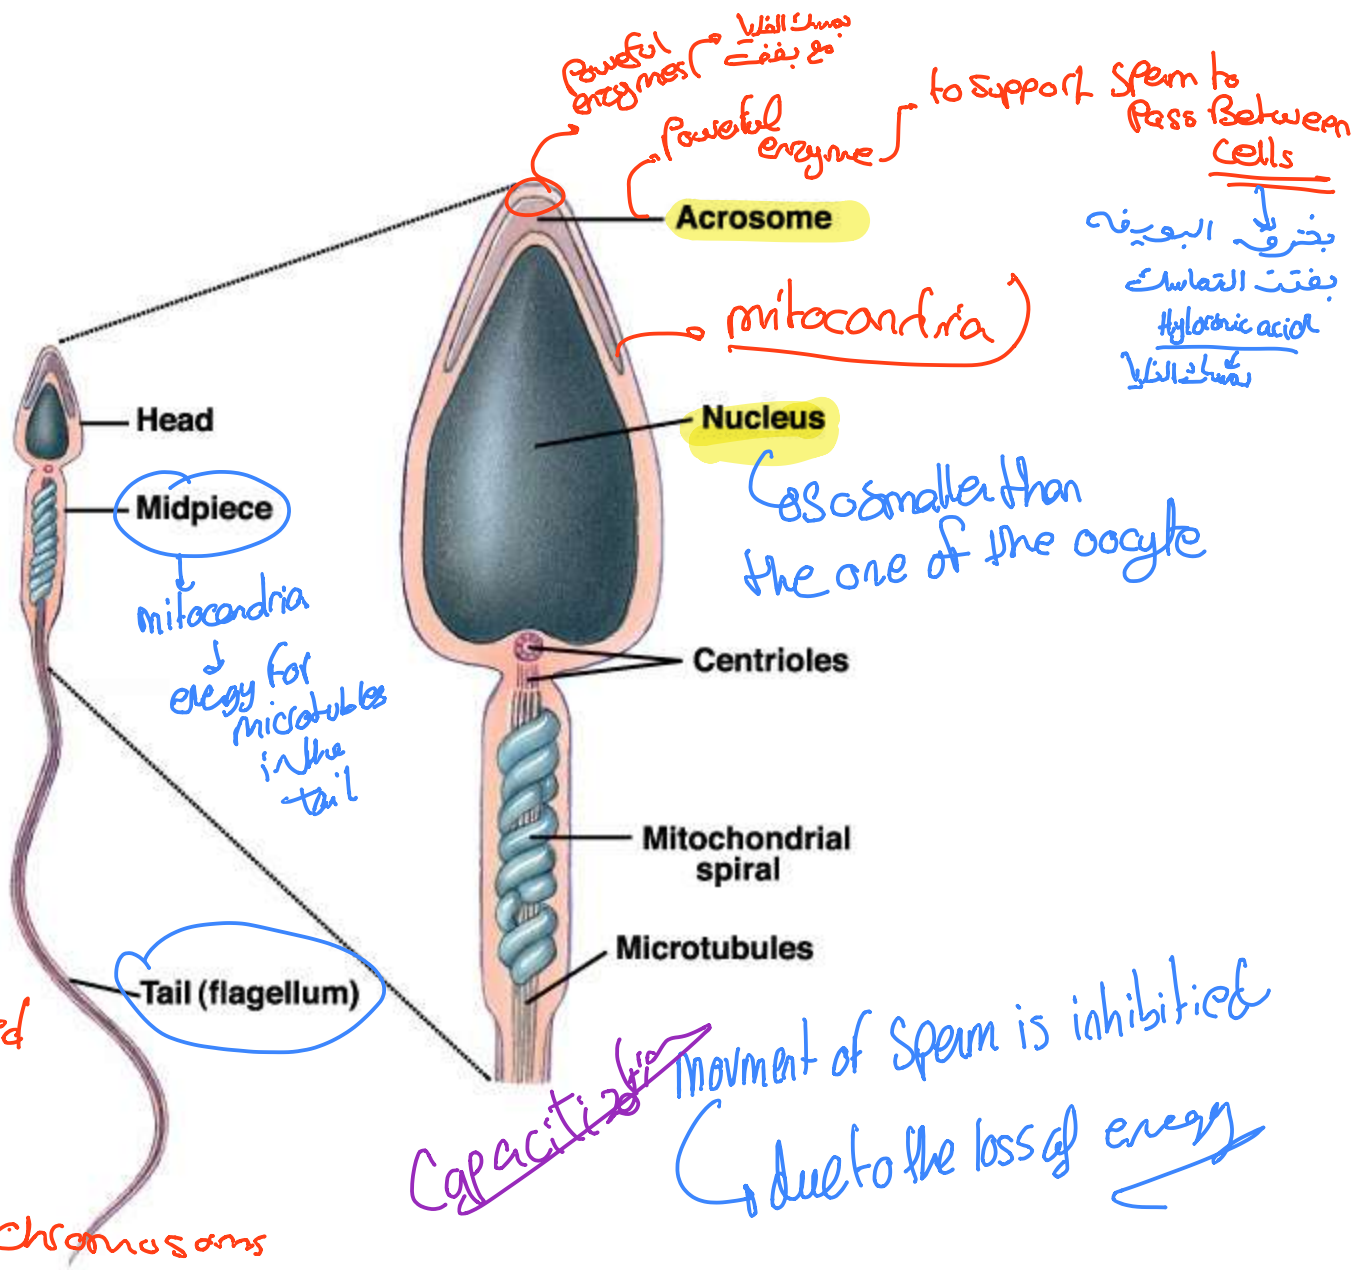 Powerful
enzymes
بمسك الخلايا
مع بعض
Powerful
enzyme
to support sperm to
Pass Between
cells
Acrosome
بخترق البويضه
بفتت التماسك
Hyloronic acid
بمسك الخلايا
mitocondria
Head
Nucleus
Midpiece
smaller than
the one of the oocyte
mitocondria
energy for
microtubles
in the
tail
Centrioles
Mitochondrial
spiral
Microtubules
Tail (flagellum)
ed
movment of sperm is inhibitied
due to the loss of energy
Chromosoms